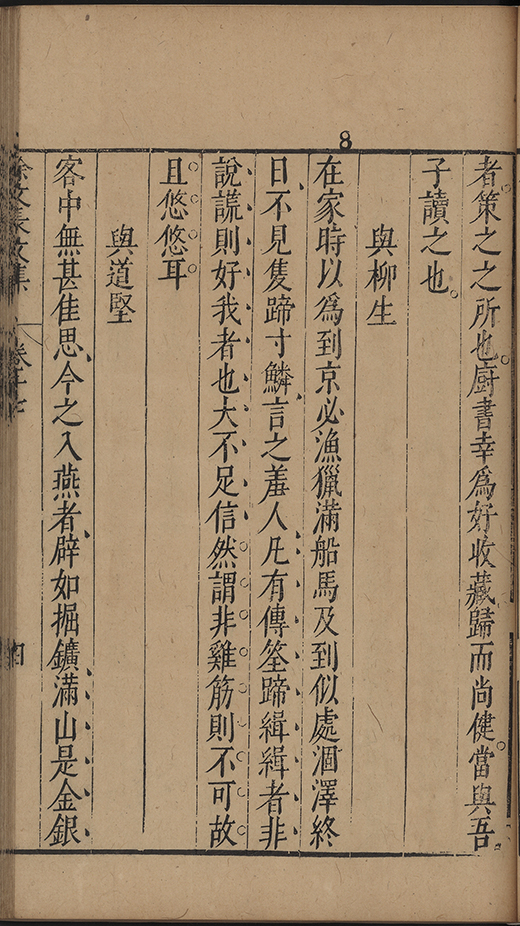 8
者策之之所也。廚書幸爲好收藏歸而尚健。當與吾
子讀之也。
與柳生
在家時以爲到京必漁獵滿船馬及到似處涸澤終
日、不見隻蹄寸鱗、言之羞人凡有傳筌蹄緝緝者非
說謊則好我者也大不足信然謂非雞筋則不可故
且悠悠耳
與道堅
客中無甚佳思、今之入燕者、辟如掘鑛、滿山是金銀
徐文長文集
卷十七
四